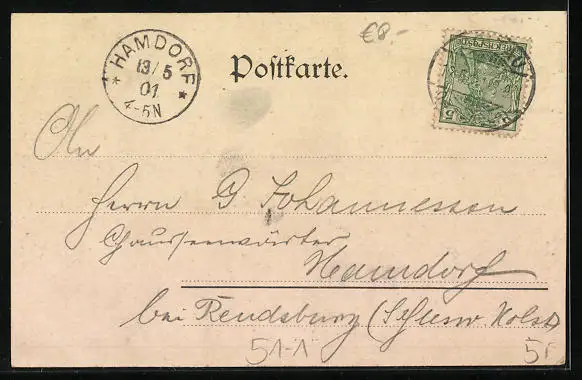 €8.-
HAMDORF
13/5
01
4-5N
Postkarte.
REICHSPOST
5
An
Herrn G Johannessen
Chausseewärter
Hamdorf
bei Rendsburg (Schlesw. Holst)
51-1